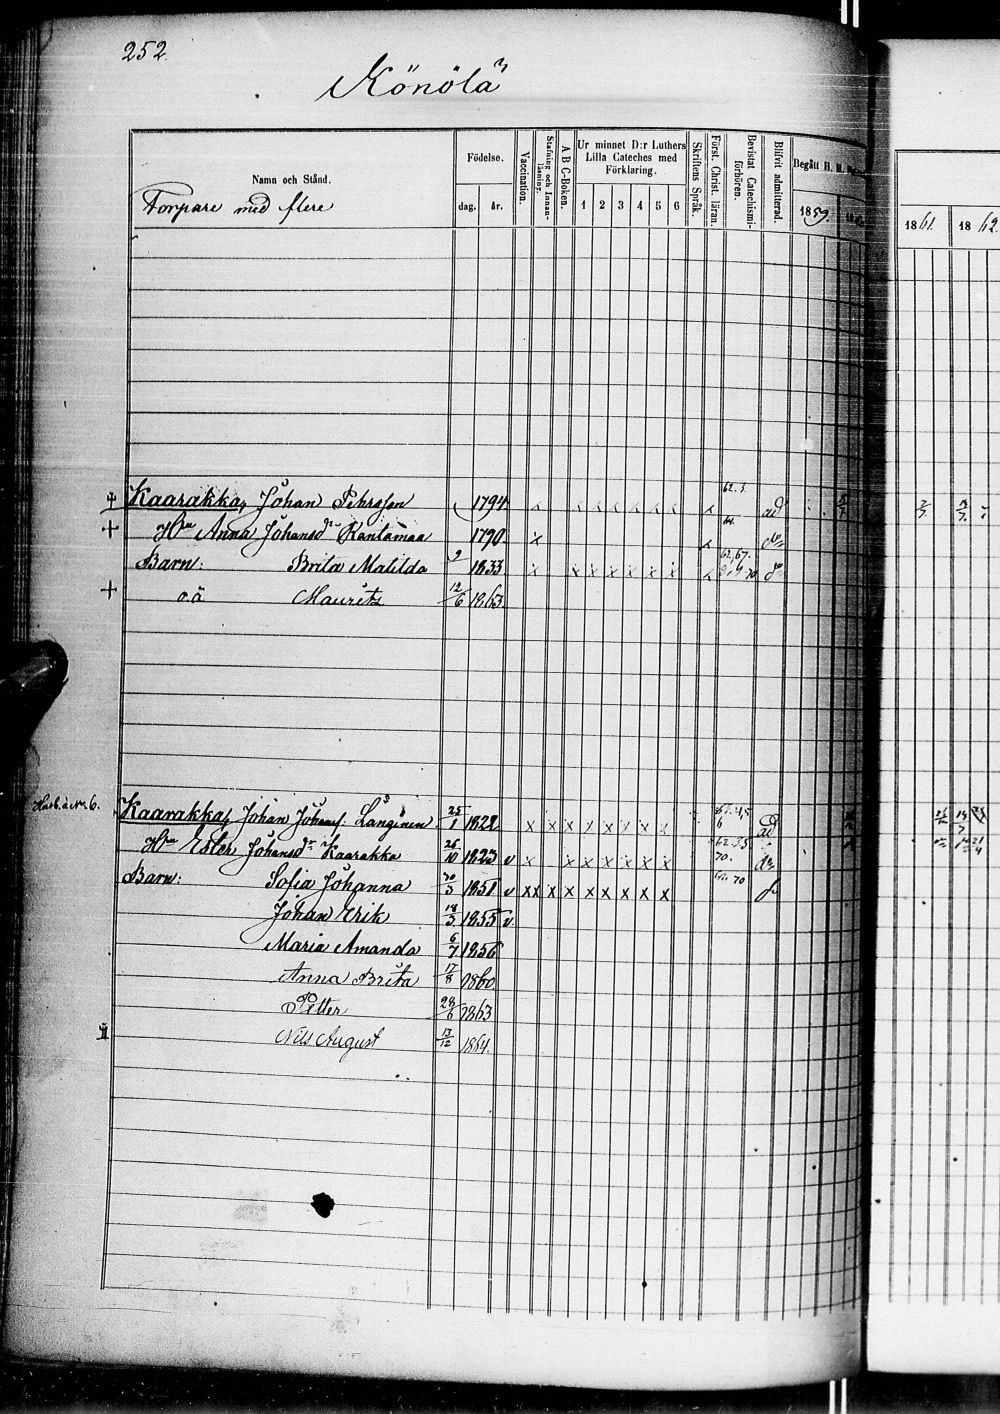 252.
Könölä
Namn och Stånd.
Torpare med flere
Födelse.
dag. år.
Vaccination.
Stafning och Innanläsning.
A B C-Boken.
Ur minnet D:r Luthers Lilla Cateches med Förklaring.
1 2 3 4 5 6
Skriftens Språk.
Först. Christ. läran.
Bevistat Catechismiförhören.
Blifvit admitterad.
Begått H. H.
1859.
1861. 1862.
Kaarakka, Johan Pehrsson 1794 x x x x x x x x ad
Hu Anna Johansdr Rantamaa 1790 x x
Barn: Brita Matilda 9 1833 x x x x x x x x
o.ä Mauritz 12/6 1863.
No. 6.
Kaarakka, Johan Johanss. Länginen 25/1 1822 x x x x x x x x ad
Hu Ester Johansdr Kaarakka 26/10 1823 v x x x x x x x 70.
Barn: Sofia Johanna 30/3 1851 v xx x x x x x x x 70
Johan Erik 18/3 1855 v
Maria Amanda 6/7 1856
Anna Brita 17/8 1860.
Petter 28/6 1863
Nils August 13/12 1864.